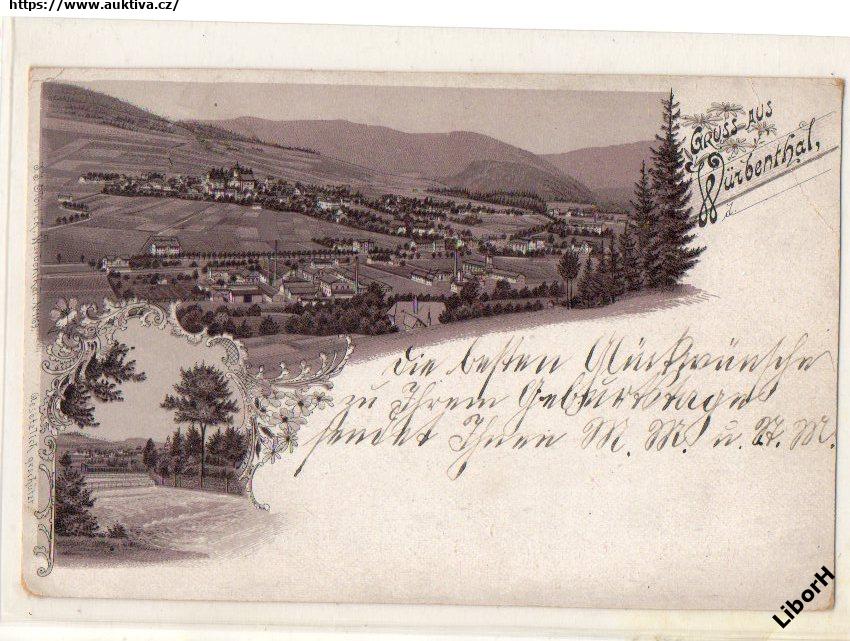 https://www.auktiva.cz/
Gruss aus
Würbenthal,
d.
Die besten Glückwünsche
zu Ihrem Geburtstage
sendet Ihnen M. M. u. A. M.
Gesetzlich geschützt
LiborH